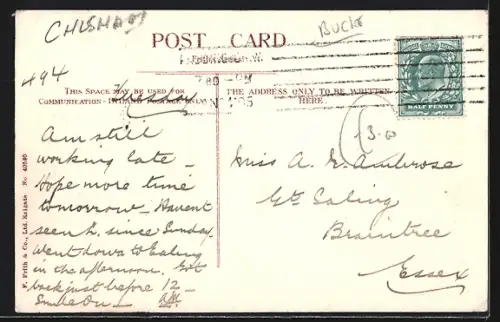 CHISHAM
BUCK
POST CARD
494
THIS SPACE MAY BE USED FOR
COMMUNICATION
THE ADDRESS ONLY TO BE WRITTEN
HERE.
HALF PENNY
Am still
working late –
Hope more time
tomorrow – Havent
seen h. since Sunday.
Went down to Ealing
in the afternoon. Got
back just before 12 –
Miss A. Ambrose
Gt. Saling
Braintree
Essex
F. Frith & Co., Ltd. Reigate No.